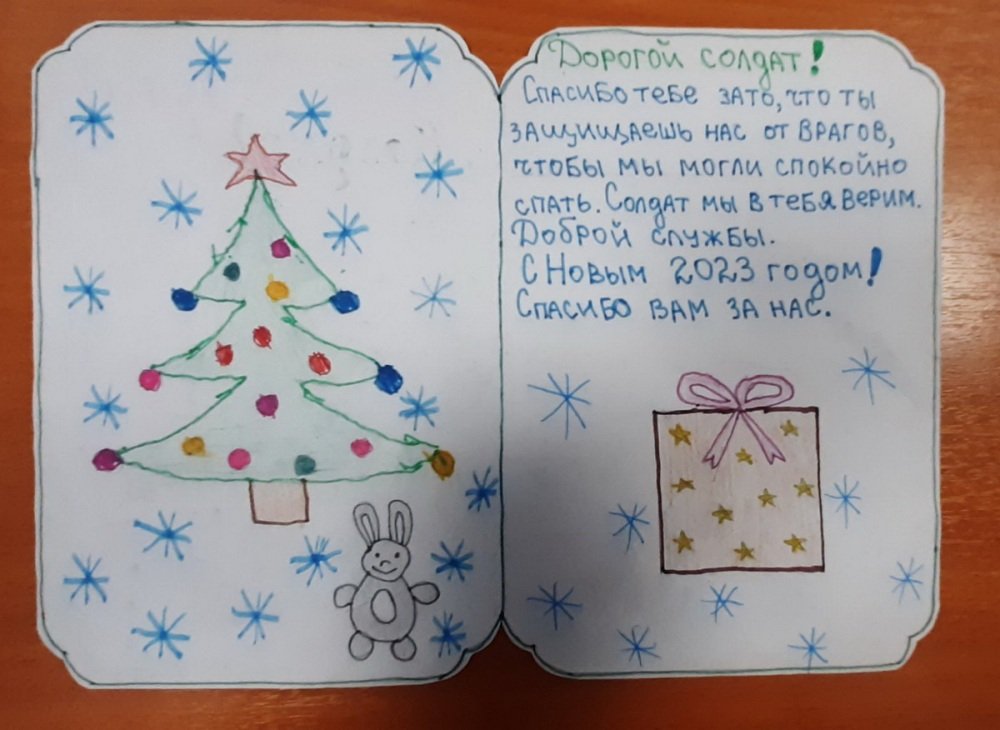 Дорогой солдат!
Спасибо тебе зато, что ты
защищаешь нас от врагов,
чтобы мы могли спокойно
спать. Солдат мы в тебя верим.
Доброй службы.
С Новым 2023 годом!
Спасибо вам за нас.